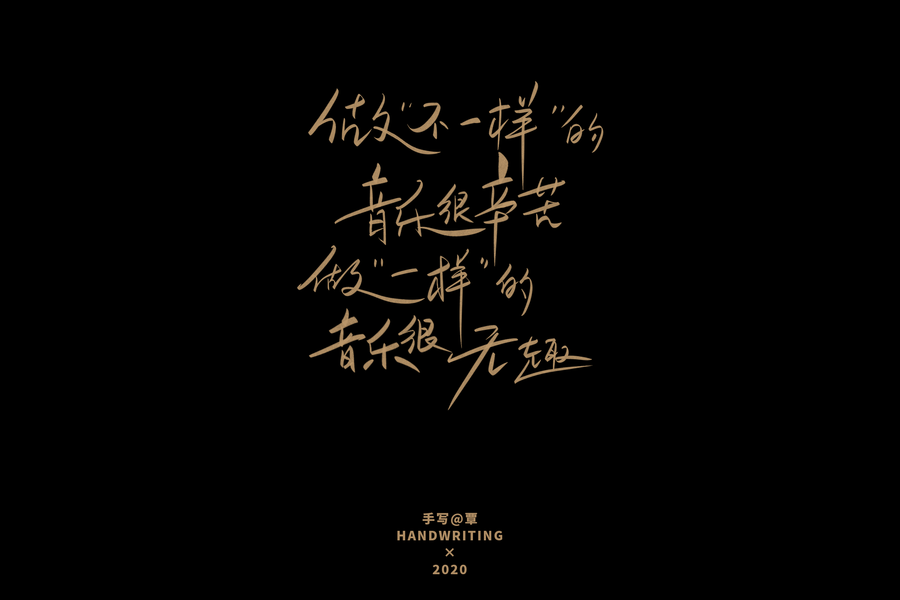 做"不一样"的
音乐很辛苦
做"一样"的
音乐很无趣
手写@覃
HANDWRITING
×
2020